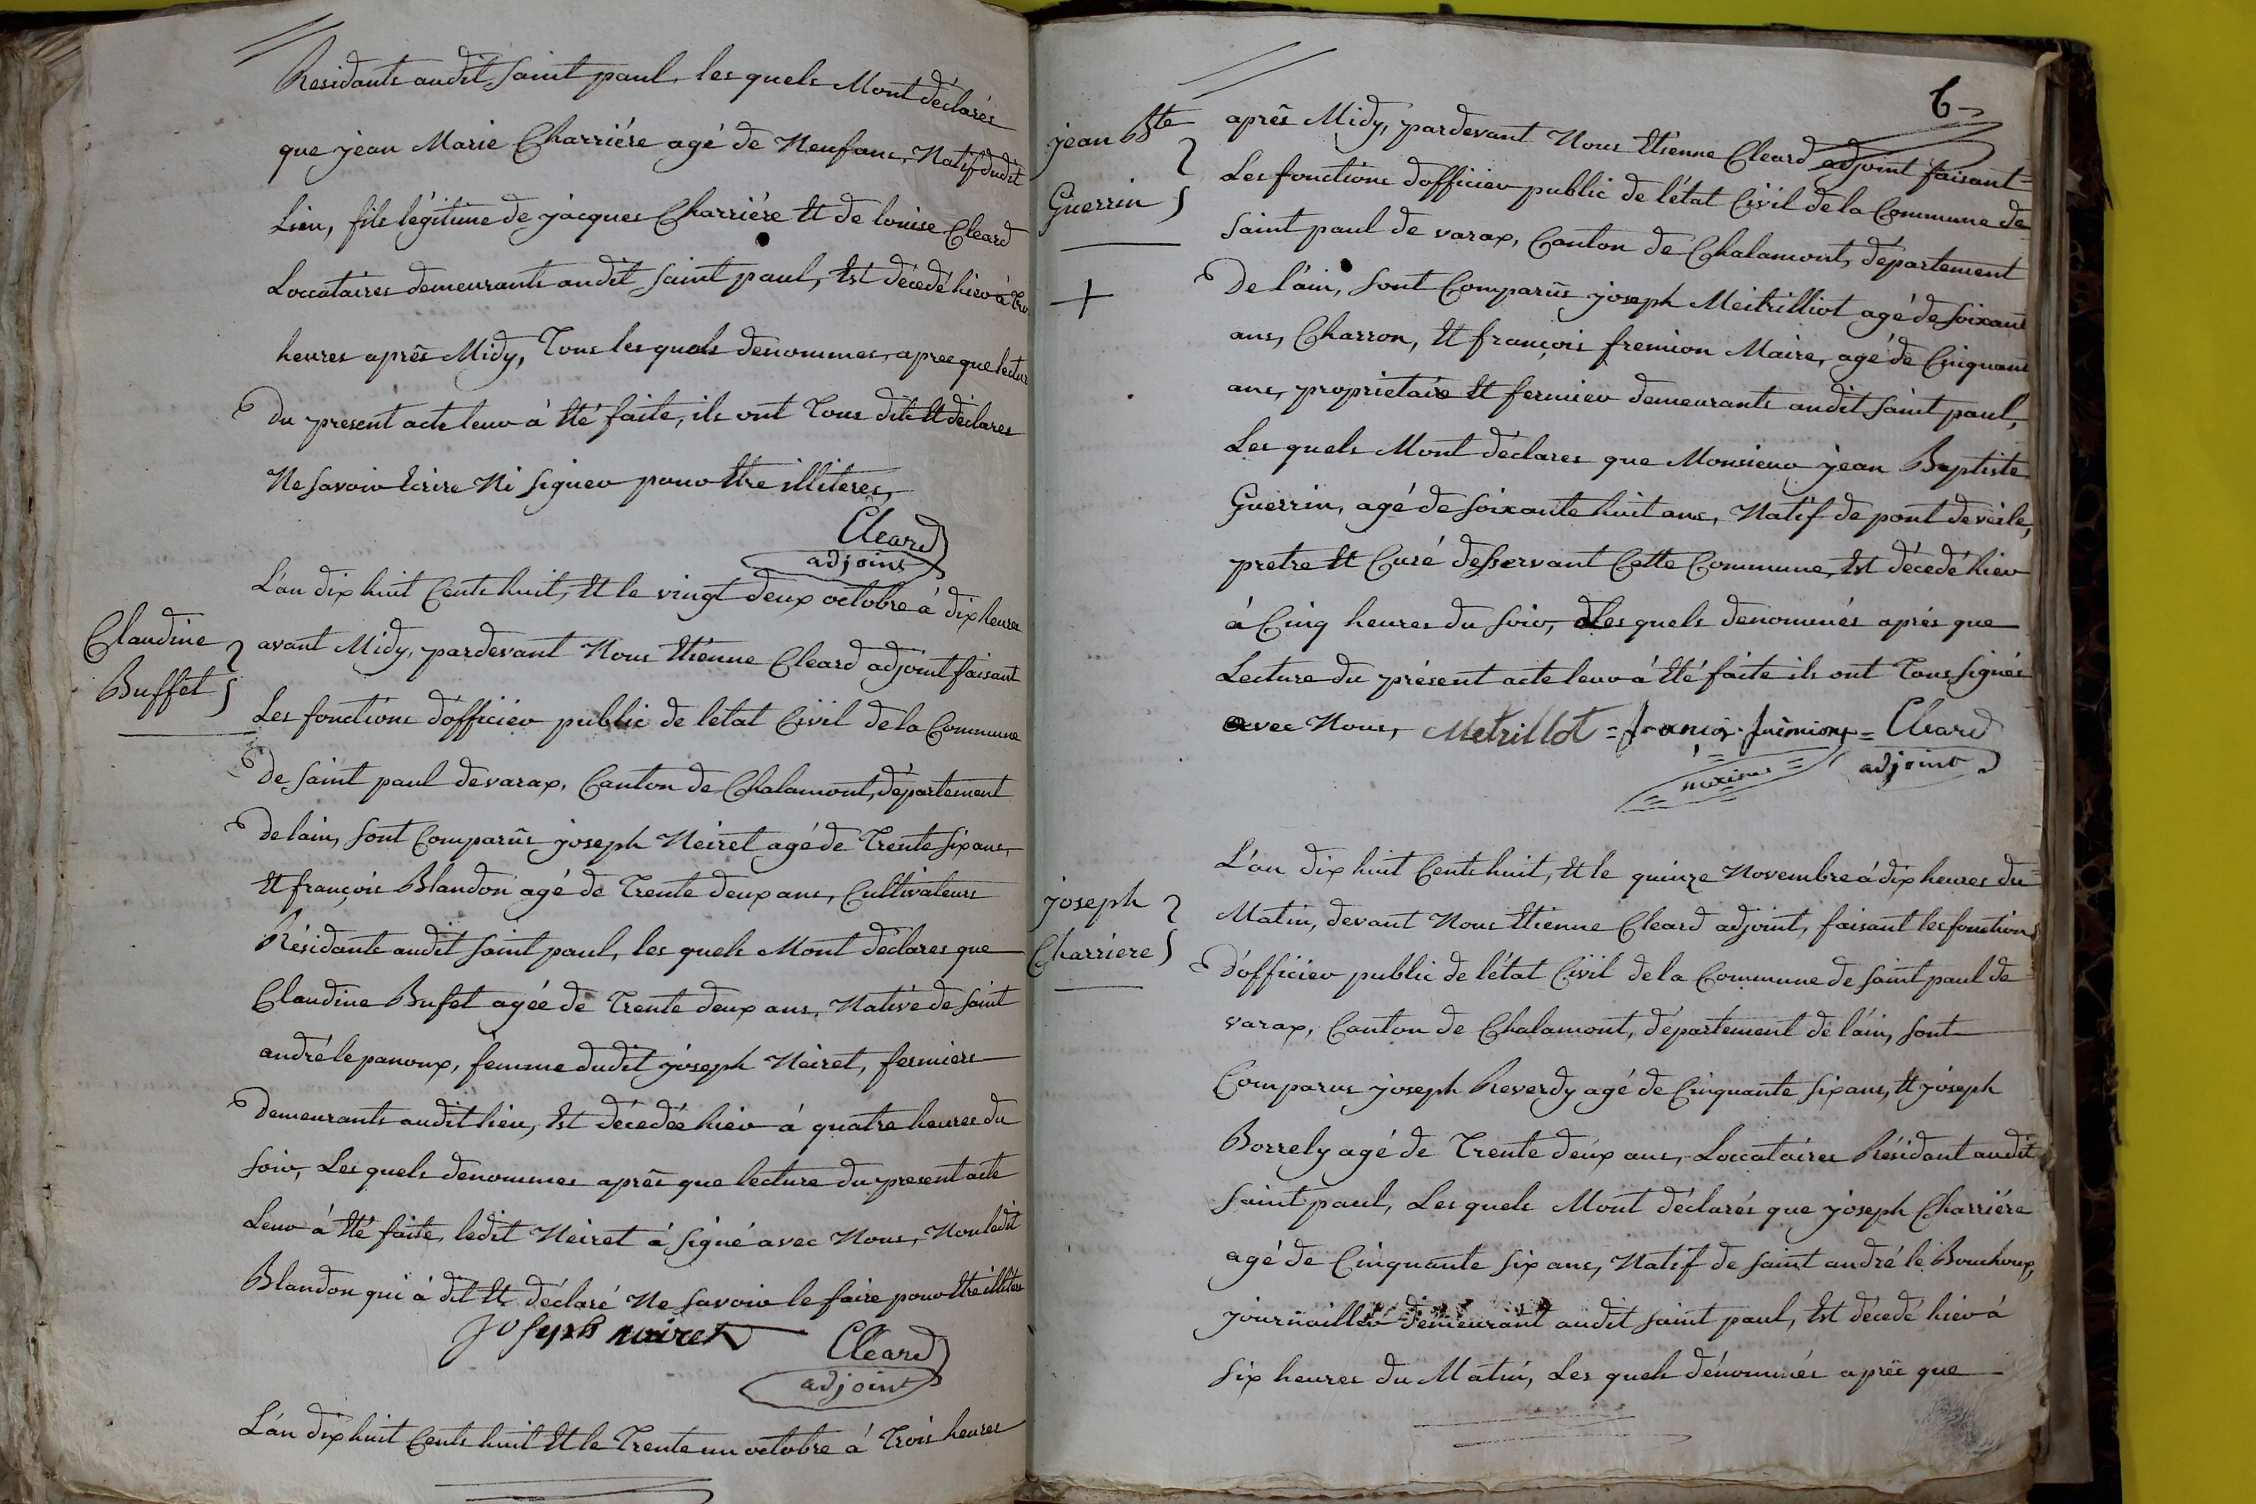 Residants audit Saint paul, les quels Mont déclarés
que jean Marie Charriére agé de Neuf ans, Natif dudit
Lieu, fils légitime de jacques Charriére Et de louise Cleard
Loccataires demeurants audit Saint paul, Est décédé hier à
heures aprês Midy, Tous les quels denommes, apres que lecture
Du present acte leur à Eté faite, ils ont Tous dit Et déclares
Ne Savoir Ecrire Ni Signer pour Etre illiteres,
Cleard
adjoint
Claudine
Buffet
L'an dix huit Cents huit, Et le vingt deux octobre à dix heures
avant Midy, pardevant Nous Etienne Cleard adjoint faisant
Les fonctions d'officier public de letat Civil de la Commune
De Saint paul de varax, Canton de Chalamont, département
De lain, Sont Comparûs joseph Neiret agé de Trente Six ans,
Et françois Blandon agé de Trente deux ans, Cultivateurs
Résidants audit Saint paul, les quels Mont déclares que
Claudine Bufet agée de Trente deux ans, Native de Saint
andré le panoux, femme dudit joseph Neiret, fermiers
Demeurants audit lieu, Est décédée hier à quatre heures du
Soir, Les quels denommes aprês que lecture du present acte
Leur à Eté faite, ledit Neiret à Signé avec Nous, Non ledit
Blandon qui à dit Et déclaré Ne Savoir le faire pour Etre illitere
Joseph neiret
Cleard
adjoint
L'an dix huit Cents huit Et le Trente un octobre à Trois heures
6
jean Bte
Guerrin
aprês Midy, pardevant Nous Etienne Cleard adjoint faisant
Les fonctions d'officier public de l'état Civil de la Commune de
Saint paul de varax, Canton de Chalamont, département
De l'ain, Sont Comparûs joseph Meitrilliot agé de Soixant
ans, Charron, Et françois fremion Maire, agé de Cinquant
ans, proprietaire Et fermier demeurants audit Saint paul,
Les quels Mont déclares que Monsieur jean Baptiste
Guerrin, agé de Soixante huit ans, Natif de pont de veile,
pretre Et Curé desservant Cette Commune, Est décédé hier
à Cinq heures du Soir, Les quels denommés aprés que
Lecture du présent acte leur à Eté faite ils ont Tous Signés
avec Nous, Metrillot = françois fremion = Cleard
adjoint
joseph
Charriere
L'an dix huit Cents huit, Et le quinze Novembre à dix heures du
Matin, devant Nous Etienne Cleard adjoint, faisant les fonctions
D'officier public de l'état Civil de la Commune de Saint paul de
varax, Canton de Chalamont, département de l'ain, Sont
Comparus joseph Reverdy agé de Cinquante Six ans, Et joseph
Borrely agé de Trente deux ans, Loccataires Résidant audit
Saint paul, Les quels Mont déclarés que joseph Charriére
agé de Cinquante Six ans, Natif de Saint andré le Bouchoux,
journaillier demeurant audit Saint paul, Est décédé hier à
Six heures du Matin, Les quels dénommés aprés que